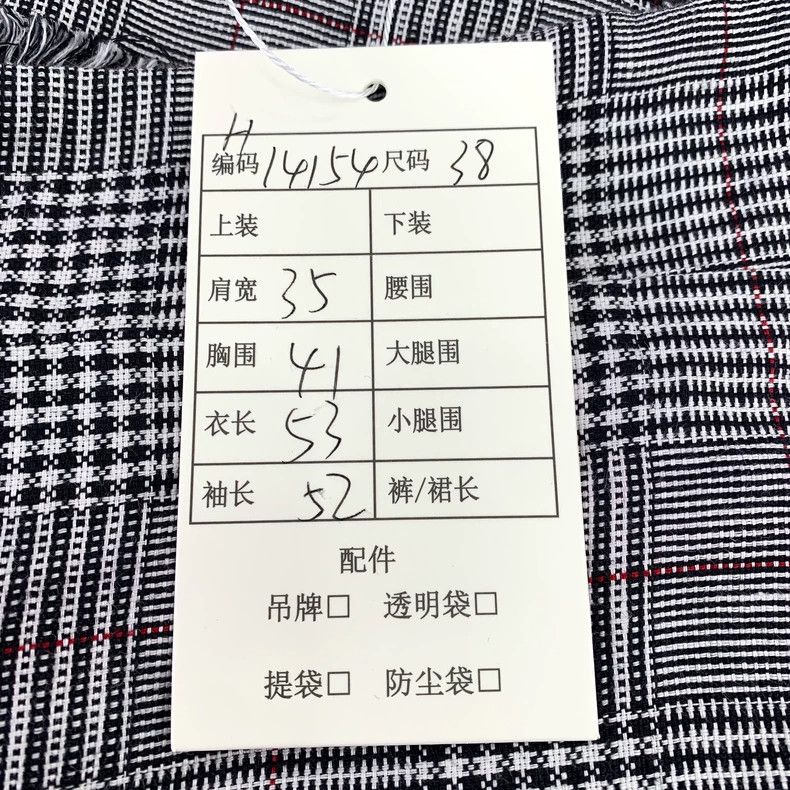 H
编码 14154 尺码 38
上装 下装
肩宽 35 腰围
胸围 41 大腿围
衣长 53 小腿围
袖长 52 裤/裙长
配件
吊牌□ 透明袋□
提袋□ 防尘袋□